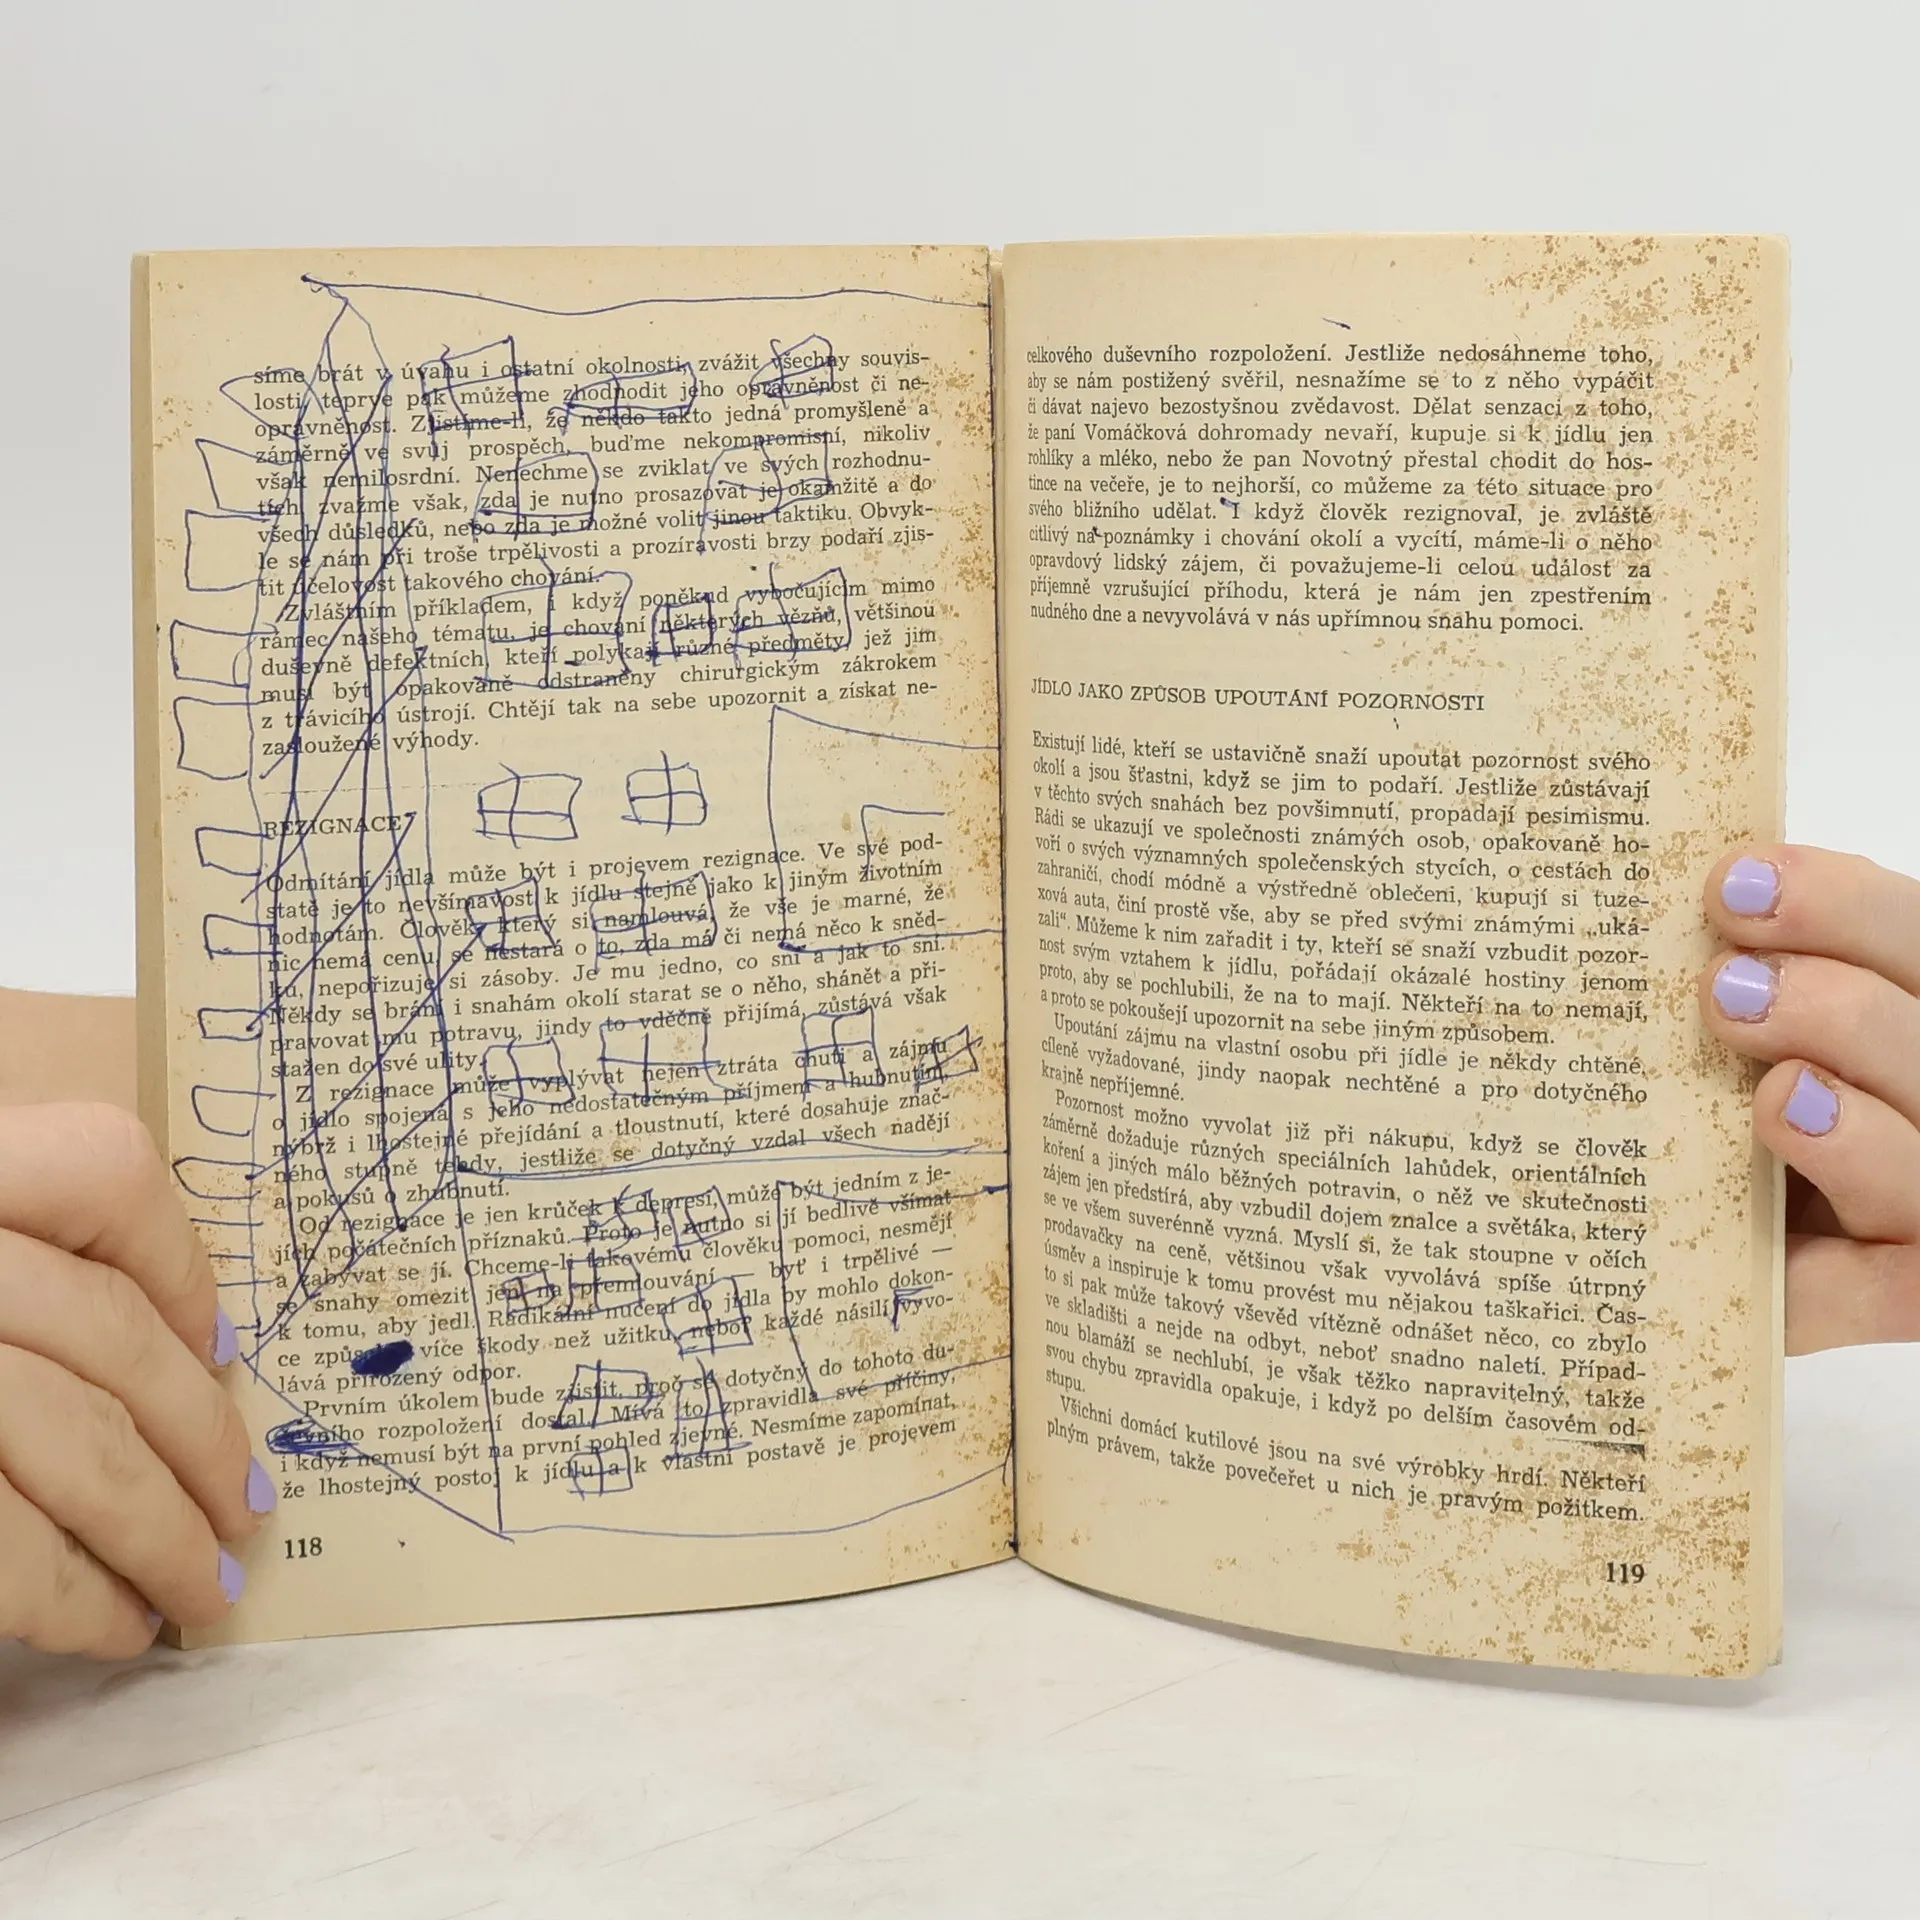 síme brát v úvahu i ostatní okolnosti, zvážit všechny souvis-
losti, teprve pak můžeme zhodnodit jeho oprávněnost či ne-
oprávněnost. Zjistíme-li, že někdo takto jedná promyšleně a
záměrně ve svůj prospěch, buďme nekompromisní, nikoliv
však nemilosrdní. Nenechme se zviklat ve svých rozhodnu-
tích, zvažme však, zda je nutno prosazovat je okamžitě a do
všech důsledků, nebo zda je možné volit jinou taktiku. Obvyk-
le se nám při troše trpělivosti a prozíravosti brzy podaří zjis-
tit účelovost takového chování.
Zvláštním příkladem, i když poněkud vybočujícím mimo
rámec našeho tématu, je chování některých vězňů, většinou
duševně defektních, kteří polykají různé předměty, jež jim
musí být opakovaně odstraněny chirurgickým zákrokem
z trávicího ústrojí. Chtějí tak na sebe upozornit a získat ne-
zasloužené výhody.
REZIGNACE
Odmítání jídla může být i projevem rezignace. Ve své pod-
statě je to nevšímavost k jídlu stejně jako k jiným životním
hodnotám. Člověk, který si namlouvá, že vše je marné, že
nic nemá cenu, se nestará o to, zda má či nemá něco k sněd-
ku, nepořizuje si zásoby. Je mu jedno, co sní a jak to sní.
Někdy se brání i snahám okolí starat se o něho, shánět a při-
pravovat mu potravu, jindy to vděčně přijímá, zůstává však
stažen do své ulity.
Z rezignace může vyplývat nejen ztráta chuti a zájmu
o jídlo spojená s jeho nedostatečným příjmem a hubnutím,
nýbrž i lhostejné přejídání a tloustnutí, které dosahuje znač-
ného stupně tehdy, jestliže se dotyčný vzdal všech nadějí
a pokusů o zhubnutí.
Od rezignace je jen krůček k depresi, může být jedním z je-
jích počátečních příznaků. Proto je nutno si jí bedlivě všímat
a zabývat se jí. Chceme-li takovému člověku pomoci, nesmějí
se snahy omezit jen na přemlouvání — byť i trpělivé —
k tomu, aby jedl. Radikální nucení do jídla by mohlo dokon-
ce více škody než užitku, neboť každé násilí vyvo-
lává přirozený odpor.
Prvním úkolem bude zjistit, proč se dotyčný do tohoto du-
ševního rozpoložení dostal. Mívá to zpravidla své příčiny,
i když nemusí být na první pohled zjevné. Nesmíme zapomínat,
že lhostejný postoj k jídlu a k vlastní postavě je projevem
118
celkového duševního rozpoložení. Jestliže nedosáhneme toho,
aby se nám postižený svěřil, nesnažíme se to z něho vypáčit
či dávat najevo bezostyšnou zvědavost. Dělat senzaci z toho,
že paní Vomáčková dohromady nevaří, kupuje si k jídlu jen
rohlíky a mléko, nebo že pan Novotný přestal chodit do hos-
tince na večeře, je to nejhorší, co můžeme za této situace pro
svého bližního udělat. I když člověk rezignoval, je zvláště
citlivý na poznámky i chování okolí a vycítí, máme-li o něho
opravdový lidský zájem, či považujeme-li celou událost za
příjemně vzrušující příhodu, která je nám jen zpestřením
nudného dne a nevyvolává v nás upřímnou snahu pomoci.
JÍDLO JAKO ZPŮSOB UPOUTÁNÍ POZORNOSTI
Existují lidé, kteří se ustavičně snaží upoutat pozornost svého
okolí a jsou šťastni, když se jim to podaří. Jestliže zůstávají
v těchto svých snahách bez povšimnutí, propadají pesimismu.
Rádi se ukazují ve společnosti známých osob, opakovaně ho-
voří o svých významných společenských stycích, o cestách do
zahraničí, chodí módně a výstředně oblečeni, kupují si tuze-
xová auta, činí prostě vše, aby se před svými známými „uká-
zali“. Můžeme k nim zařadit i ty, kteří se snaží vzbudit pozor-
nost svým vztahem k jídlu, pořádají okázalé hostiny jenom
proto, aby se pochlubili, že na to mají. Někteří na to nemají,
a proto se pokoušejí upozornit na sebe jiným způsobem.
Upoutání zájmu na vlastní osobu při jídle je někdy chtěné,
cíleně vyžadované, jindy naopak nechtěné a pro dotyčného
krajně nepříjemné.
Pozornost možno vyvolat již při nákupu, když se člověk
záměrně dožaduje různých speciálních lahůdek, orientálních
koření a jiných málo běžných potravin, o něž ve skutečnosti
zájem jen předstírá, aby vzbudil dojem znalce a světáka, který
se ve všem suverénně vyzná. Myslí si, že tak stoupne v očích
prodavačky na ceně, většinou však vyvolává spíše útrpný
úsměv a inspiruje k tomu provést mu nějakou taškařici. Čas-
to si pak může takový vševěd vítězně odnášet něco, co zbylo
ve skladišti a nejde na odbyt, neboť snadno naletí. Případ-
nou blamáží se nechlubí, je však těžko napravitelný, takže
svou chybu zpravidla opakuje, i když po delším časovém od-
stupu.
Všichni domácí kutilové jsou na své výrobky hrdí. Někteří
plným právem, takže povečeřet u nich je pravým požitkem.
119